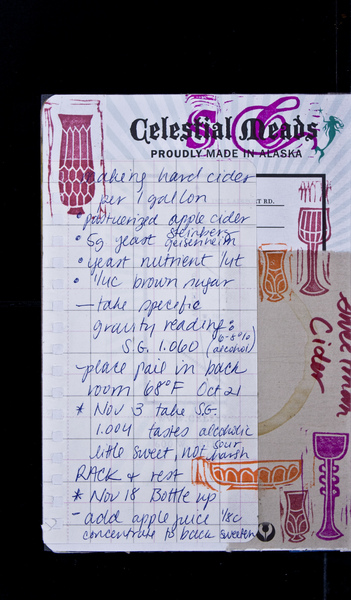 Celestial Meads
PROUDLY MADE IN ALASKA
RD.
making hard cider
per 1 gallon
pasturized apple cider
• 5g yeast Steinberg Geisenheim
• yeast nutrient 1/4t
• 1/4c brown sugar
— take specific
gravity reading:
S.G. 1.060 (6-8% alcohol)
- place pail in back
room 68°F Oct 21
* Nov 3 take S.G.
1.004 tastes alcoholic
little sweet, not sour harsh
RACK & rest
* Nov 18 Bottle up
- add apple juice 1/8c
concentrate to back sweeten
Cider